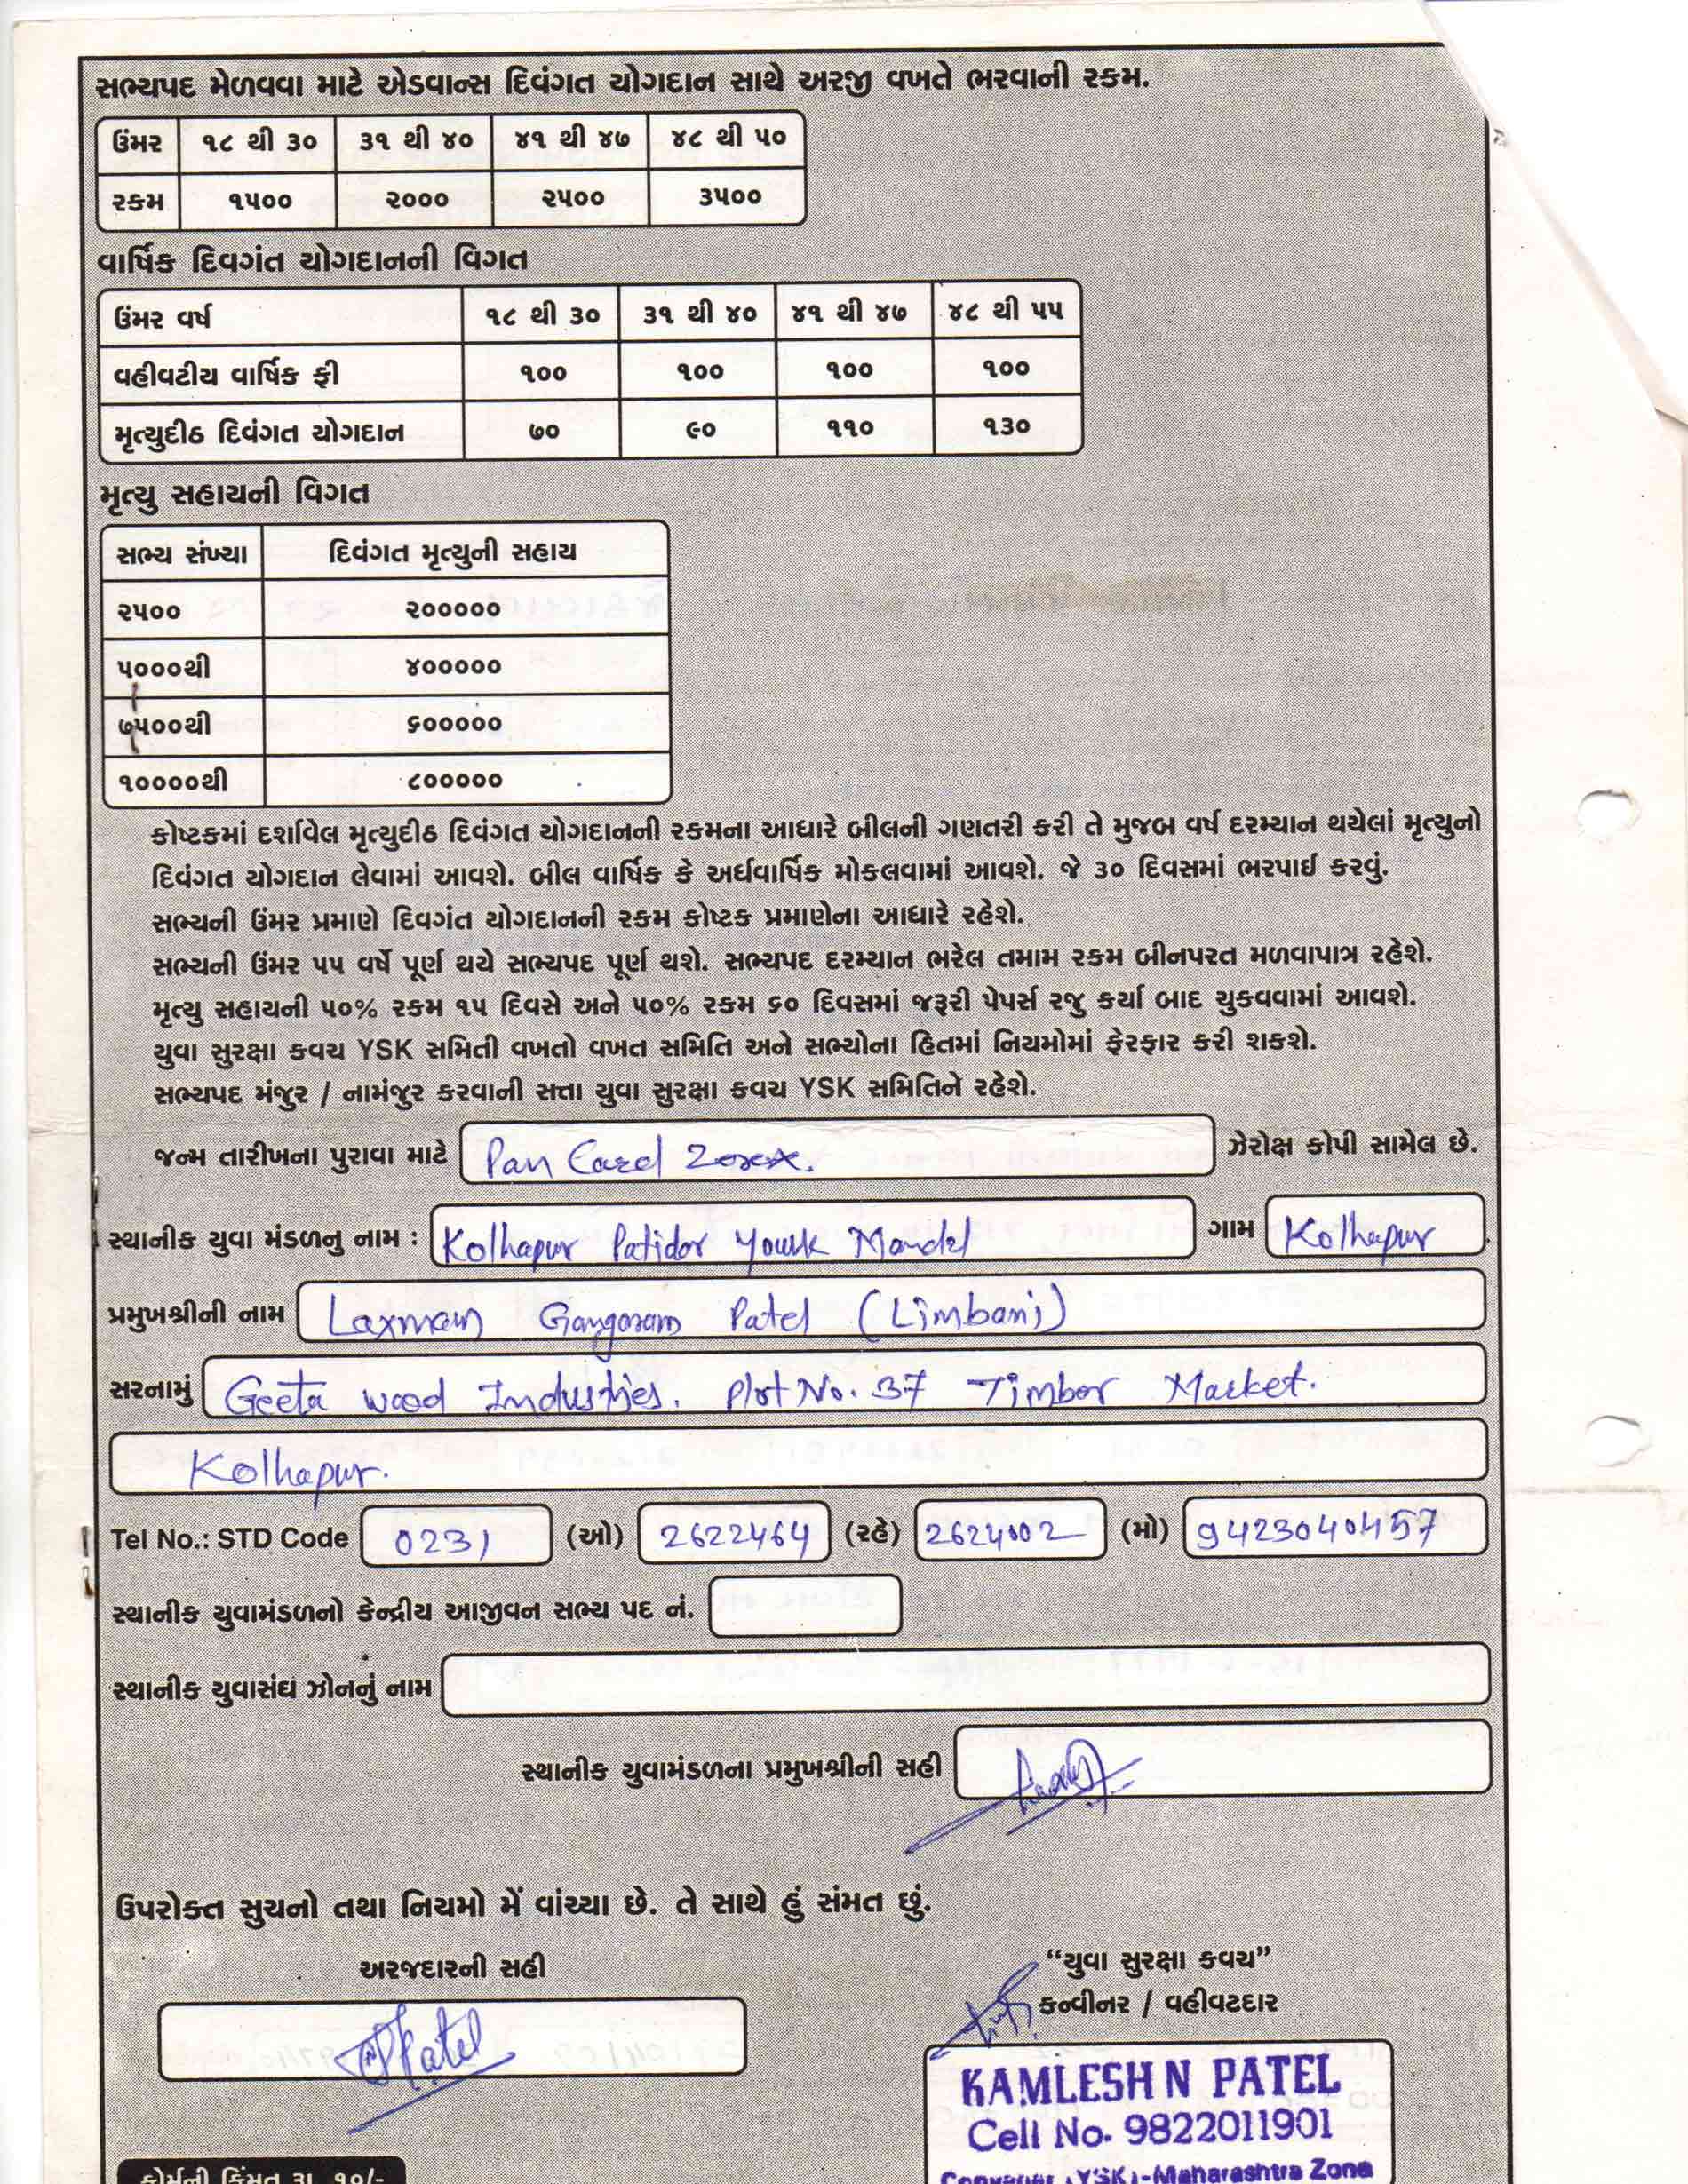 સભ્યપદ મેળવવા માટે એડવાન્સ દિવંગત યોગદાન સાથે અરજી વખતે ભરવાની રકમ.
ઉંમર ૧૮ થી ૩૦ ૩૧ થી ૪૦ ૪૧ થી ૪૭ ૪૮ થી ૫૦
રકમ ૧૫૦૦ ૨૦૦૦ ૨૫૦૦ ૩૫૦૦
વાર્ષિક દિવગંત યોગદાનની વિગત
ઉંમર વર્ષ ૧૮ થી ૩૦ ૩૧ થી ૪૦ ૪૧ થી ૪૭ ૪૮ થી ૫૫
વહીવટીય વાર્ષિક ફી ૧૦૦ ૧૦૦ ૧૦૦ ૧૦૦
મૃત્યુદીઠ દિવંગત યોગદાન ૭૦ ૯૦ ૧૧૦ ૧૩૦
મૃત્યુ સહાયની વિગત
સભ્ય સંખ્યા દિવંગત મૃત્યુની સહાય
૨૫૦૦ ૨૦૦૦૦૦
૫૦૦૦થી ૪૦૦૦૦૦
૭૫૦૦થી ૬૦૦૦૦૦
૧૦૦૦૦થી ૮૦૦૦૦૦
કોષ્ટકમાં દર્શાવેલ મૃત્યુદીઠ દિવંગત યોગદાનની રકમના આધારે બીલની ગણતરી કરી તે મુજબ વર્ષ દરમ્યાન થયેલાં મૃત્યુનો
દિવંગત યોગદાન લેવામાં આવશે. બીલ વાર્ષિક કે અર્ધવાર્ષિક મોકલવામાં આવશે. જે ૩૦ દિવસમાં ભરપાઈ કરવું.
સભ્યની ઉંમર પ્રમાણે દિવગંત યોગદાનની રકમ કોષ્ટક પ્રમાણેના આધારે રહેશે.
સભ્યની ઉંમર ૫૫ વર્ષે પૂર્ણ થયે સભ્યપદ પૂર્ણ થશે. સભ્યપદ દરમ્યાન ભરેલ તમામ રકમ બીનપરત મળવાપાત્ર રહેશે.
મૃત્યુ સહાયની ૫૦% રકમ ૧૫ દિવસે અને ૫૦% રકમ ૬૦ દિવસમાં જરૂરી પેપર્સ રજુ કર્યા બાદ ચુકવવામાં આવશે.
યુવા સુરક્ષા કવચ YSK સમિતી વખતો વખત સમિતિ અને સભ્યોના હિતમાં નિયમોમાં ફેરફાર કરી શકશે.
સભ્યપદ મંજુર / નામંજુર કરવાની સત્તા યુવા સુરક્ષા કવચ YSK સમિતિને રહેશે.
જન્મ તારીખના પુરાવા માટે Pan Card ઝેરોક્ષ કોપી સામેલ છે.
સ્થાનીક યુવા મંડળનુ નામ : Kolhapur Patidar Mandal ગામ Kolhapur
પ્રમુખશ્રીની નામ Laxman Gangaram Patel (Limbani)
સરનામું Geeta wood Industries. Plot No. 37 Timber Market.
Kolhapur.
Tel No.: STD Code 0231 (ઓ) 2622464 (રહે) 2624002 (મો) 9423040457
સ્થાનીક યુવામંડળનો કેન્દ્રીય આજીવન સભ્ય પદ નં.
સ્થાનીક યુવાસંઘં ઝોનનું નામ
સ્થાનીક યુવામંડળના પ્રમુખશ્રીની સહી
ઉપરોક્ત સુચનો તથા નિયમો મેં વાંચ્યા છે. તે સાથે હું સંમત છું.
અરજદારની સહી
Patel
“યુવા સુરક્ષા કવચ”
કન્વીનર / વહીવટદાર
KAMLESH N PATEL
Cell No. 9822011901
(YSK)-Maharashtra Zone
ફોર્મની કિંમત રૂા. ૧૦/-